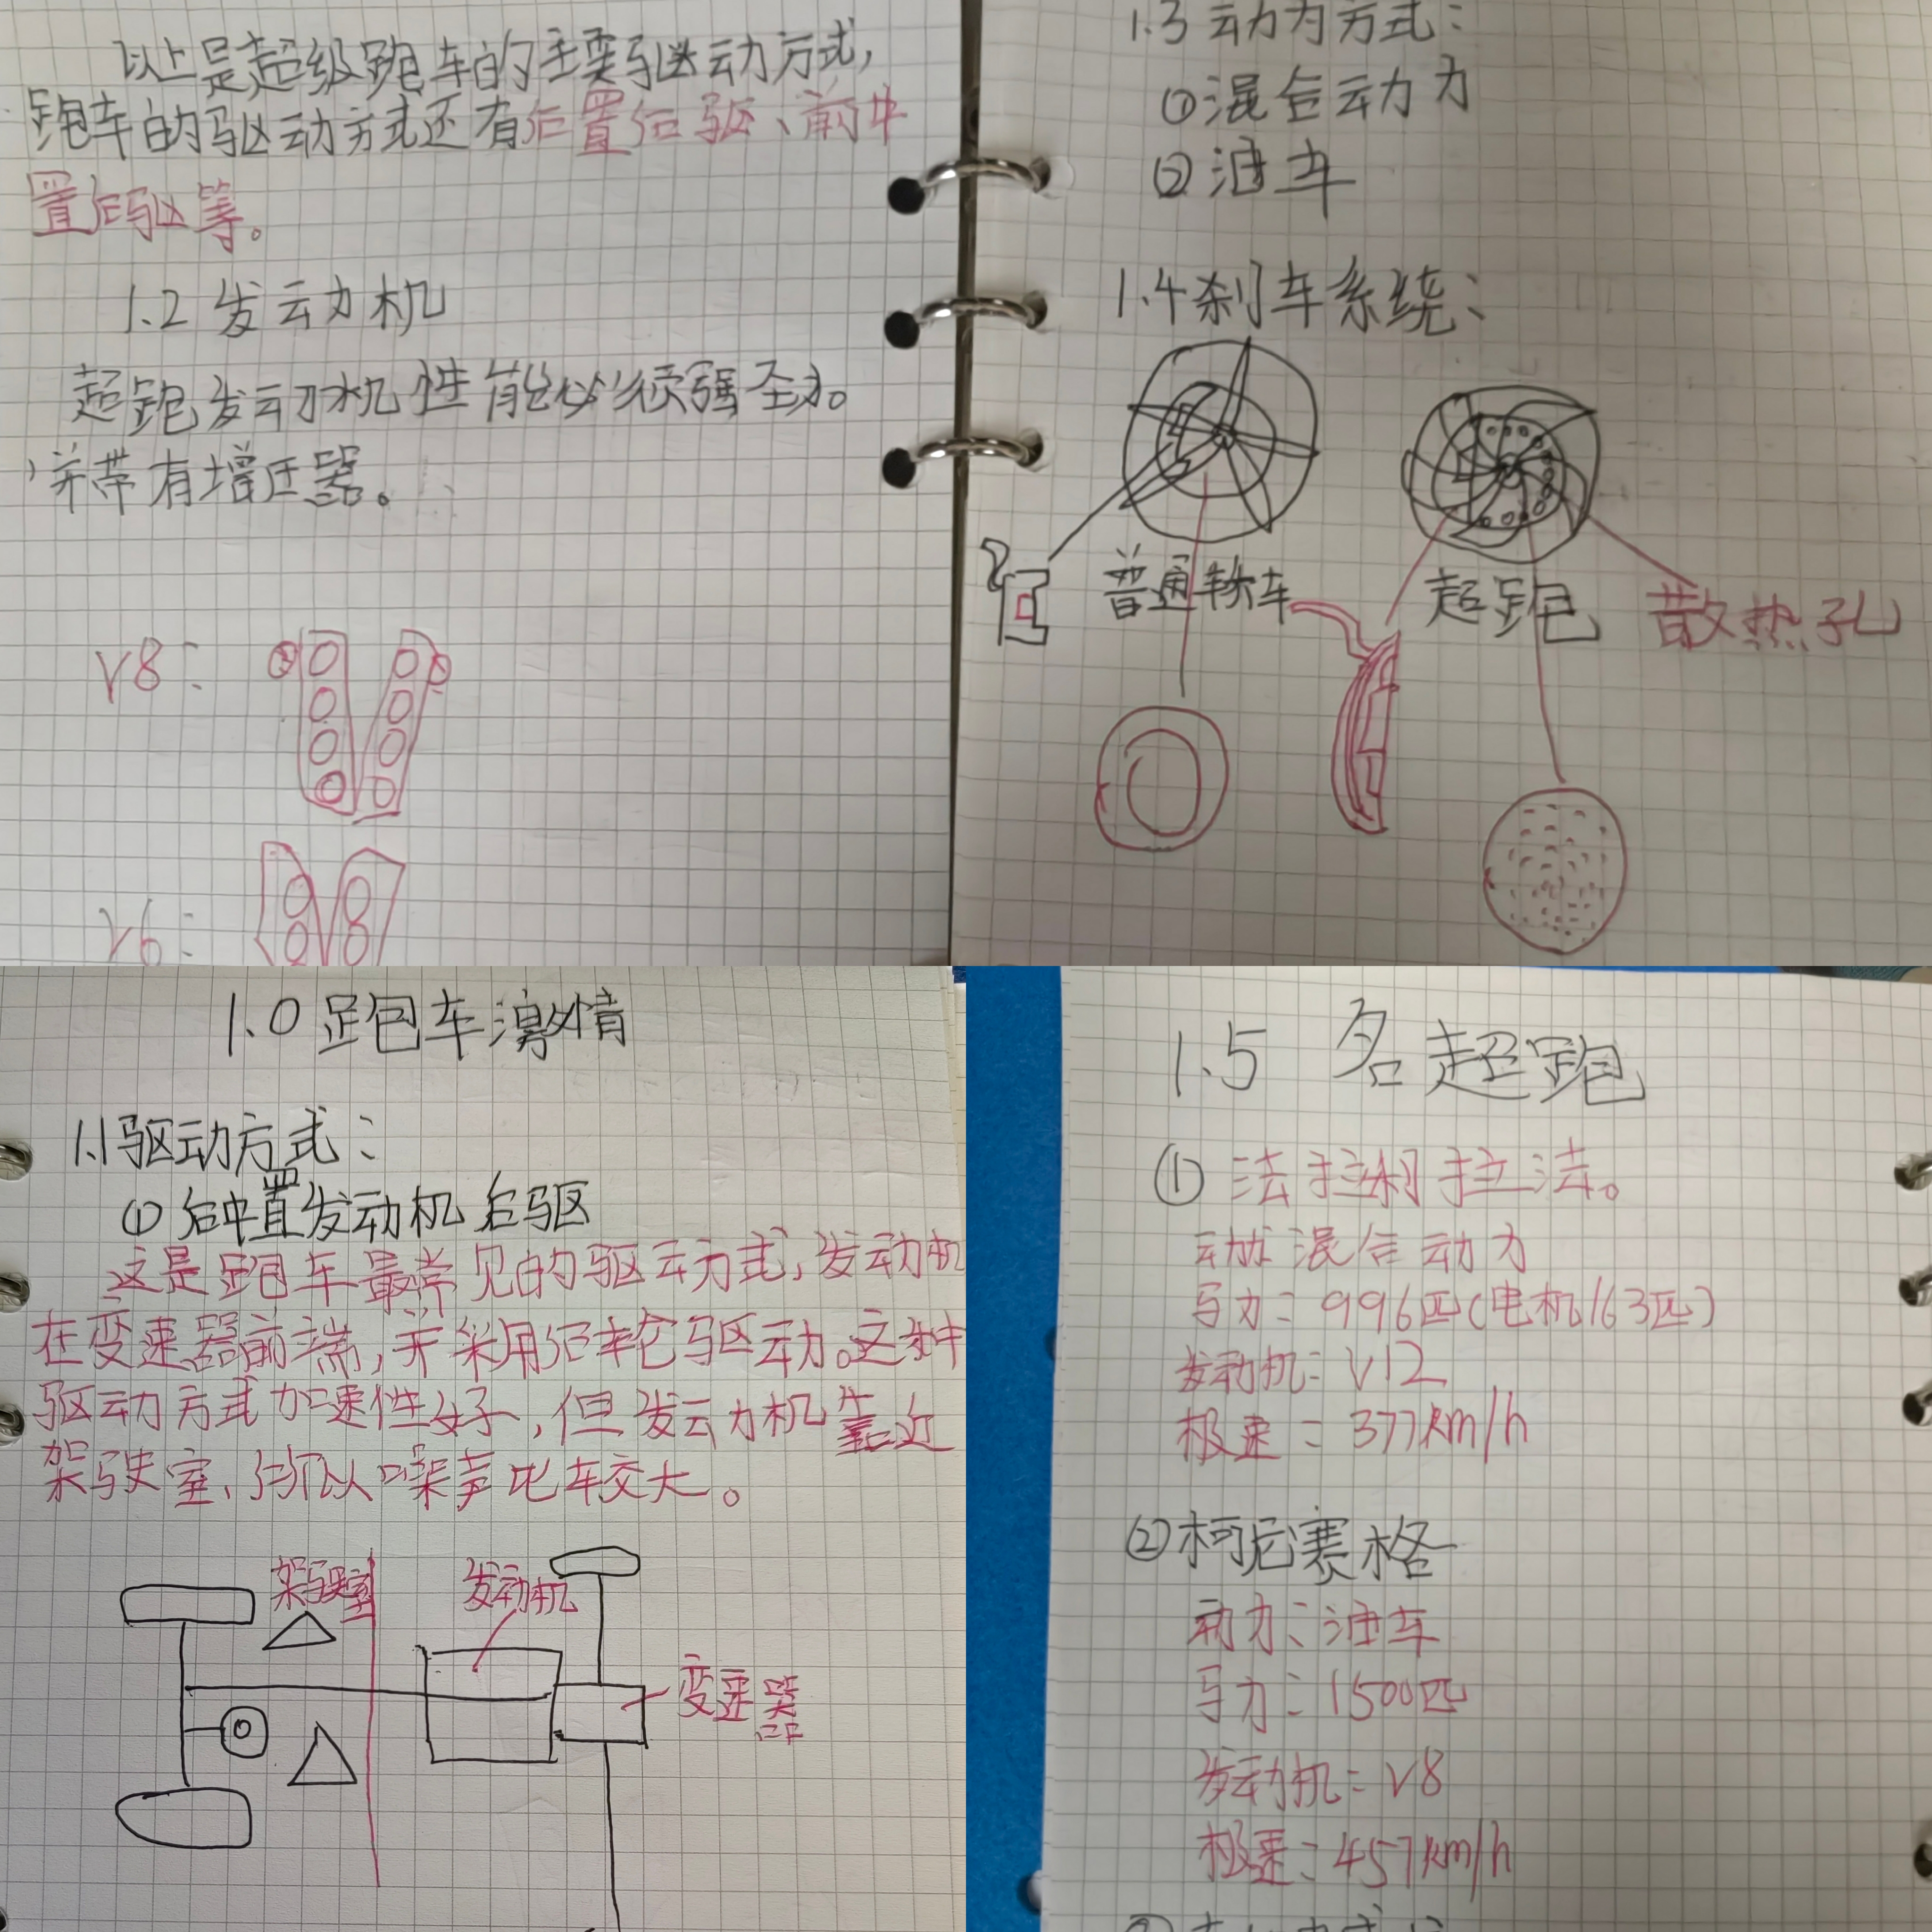 以上是超级跑车的主要驱动方式,
跑车的驱动方式还有后置后驱、前中
置后驱等。
1.2 发动机
超跑发动机性能必须强劲。
,并带有增压器。
V8:
V6:
1.3 动力方式:
①混合动力
②油车
1.4 刹车系统:
普通轿车
超跑
散热孔
1.0 跑车激情
1.1 驱动方式:
① 后中置发动机后驱
这是跑车最常见的驱动方式,发动机
在变速器前端,并采用后轮驱动。这种
驱动方式加速性好,但发动机靠近
架驶室、所以噪声比较大。
架驶室
发动机
变速器
1.5 名超跑
① 法拉利拉法。
混合动力
马力:996匹(电机163匹)
发动机:V12
极速:377km/h
②柯尼赛格
动力:油车
马力:1500匹
发动机:V8
极速:457km/h